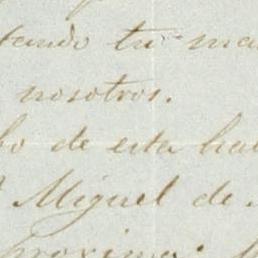 tando tu ma
nosotros.
bo de esta hab
Miguel de
proxima